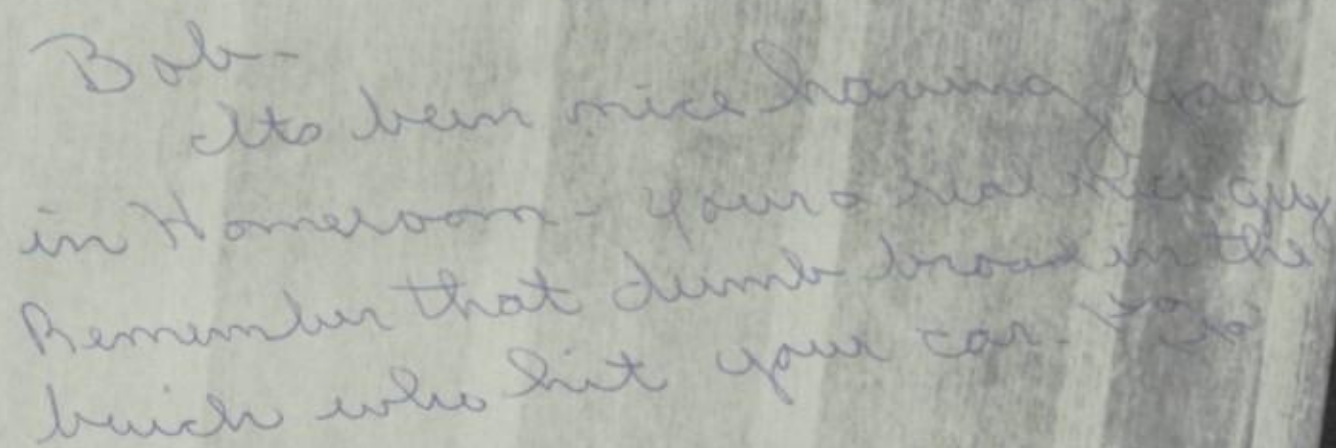 Bob-
Its been nice having you
in Homeroom - your a real nice guy
Remember that dumb broad in the
buick who hit your car.